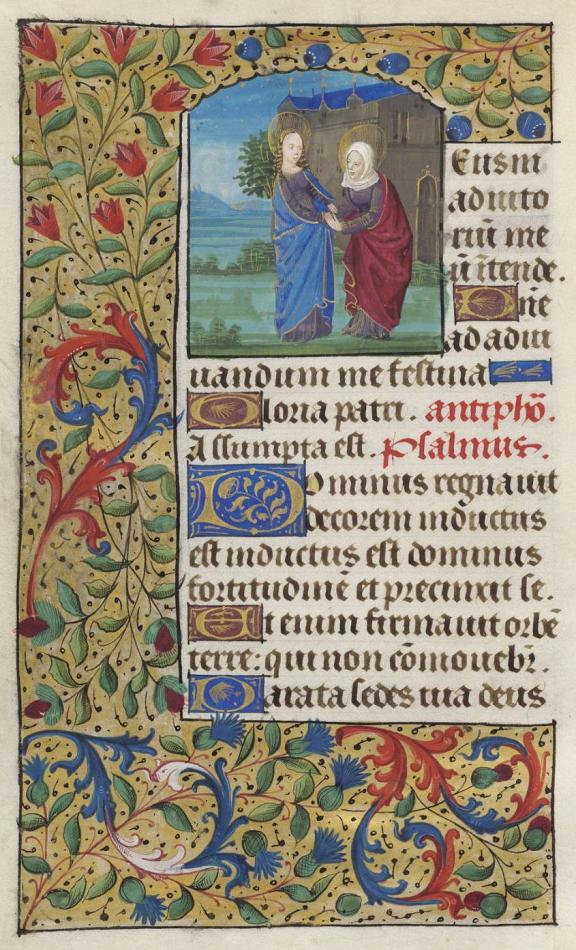 Eus in
adiuto
riū me
ū ītende.
Dn̄e
ad adiu
uandum me festina
Gloria patri. antiphō.
Assumpta est. Psalmus.
Dominus regnauit
decorem indictus
est inductus est dominus
fortitudinē et precinxit se.
Et enim firmauit orbē
terre: qui non cōmouebꝛ.
Parata sedes tua deus